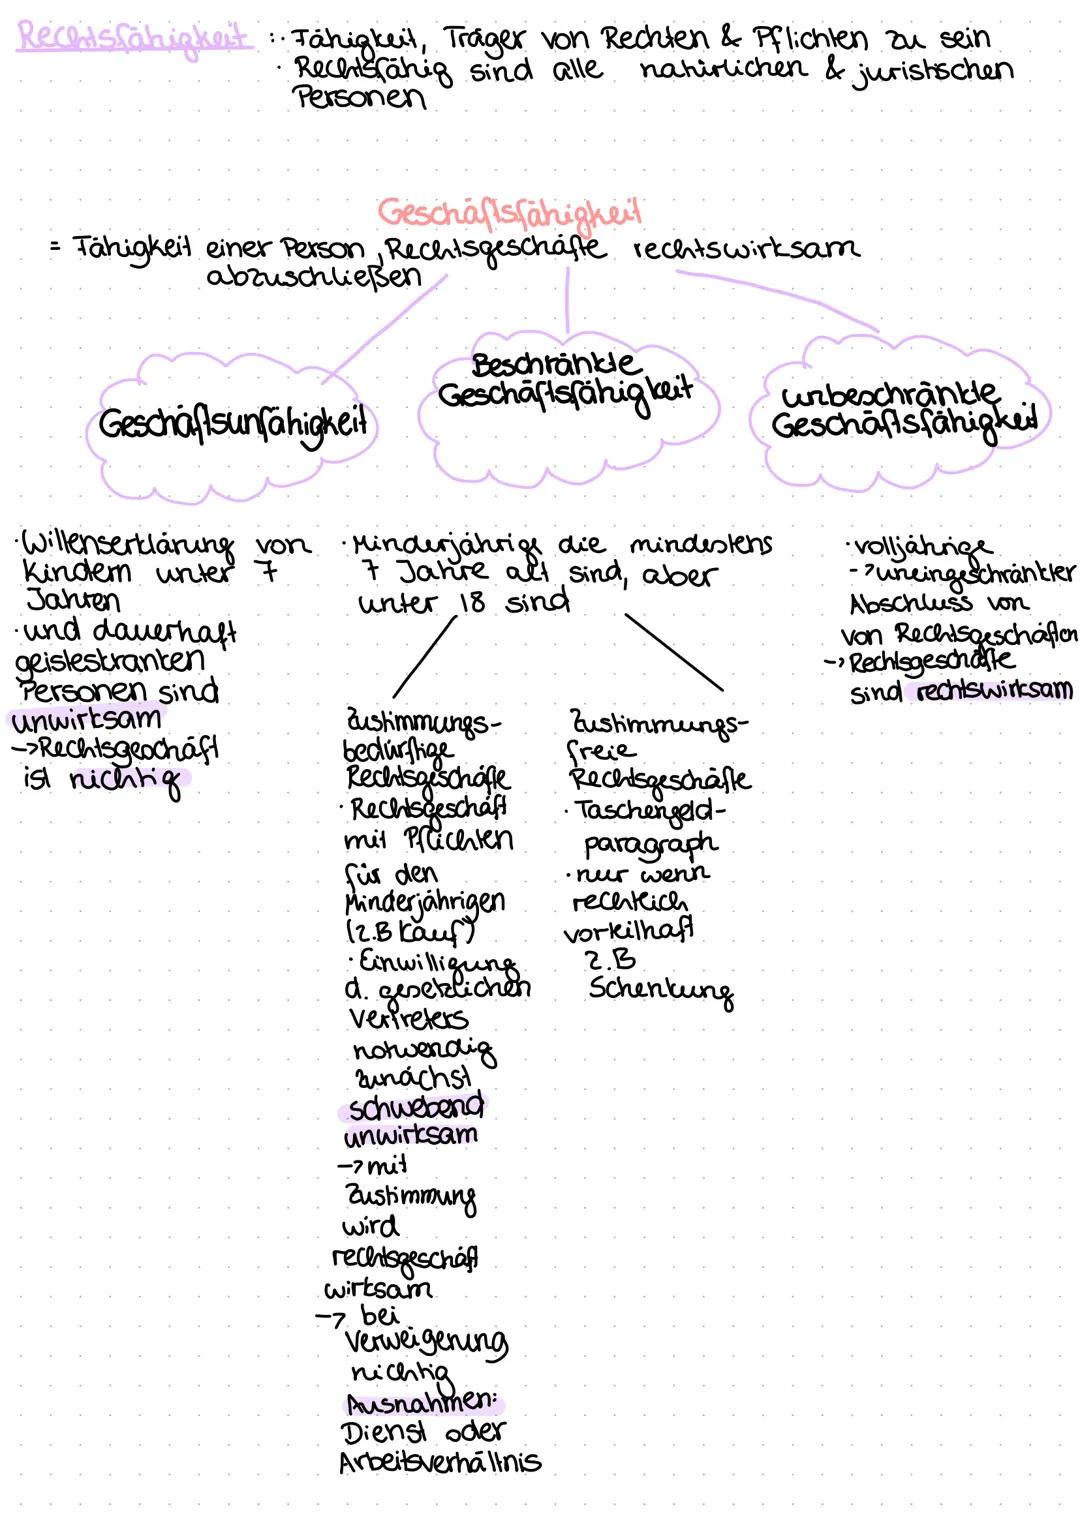 Rechtsfähigkeit :· Fähigkeit, Träger von Rechten & Pflichten zu sein
· Rechtsfähig sind alle natürlichen & juristischen
Personen
Geschäftsfähigkeit
= Fähigkeit einer Person, Rechtsgeschäfte rechtswirksam
abzuschließen
Geschäftsunfähigkeit
Beschränkte
Geschäftsfähigkeit
unbeschränkte
Geschäftsfähigkeit
·Willenserklärung von
Kindern unter 7
Jahren
·und dauerhaft
geisteskranken
Personen sind
unwirksam
->Rechtsgeschäft
ist nichtig
·Minderjährige die mindestens
7 Jahre alt sind, aber
unter 18 sind
Zustimmungs-
bedürftige
Rechtsgeschäfte
·Rechtsgeschäft
mit Pflichten
für den
Minderjährigen
(z.B Kauf)
·Einwilligung
d. gesetzlichen
Vertreters
notwendig
zunächst
schwebend
unwirksam
->mit
Zustimmung
wird
rechtsgeschäft
wirksam
-> bei
Verweigerung
nichtig
Ausnahmen:
Dienst oder
Arbeitsverhältnis
Zustimmungs-
freie
Rechtsgeschäfte
·Taschengeld-
paragraph
·nur wenn
rechtlich
vorteilhaft
z.B
Schenkung
·volljährige
->uneingeschränkter
Abschluss von
von Rechtsgeschäften
->Rechtsgeschäfte
sind rechtswirksam